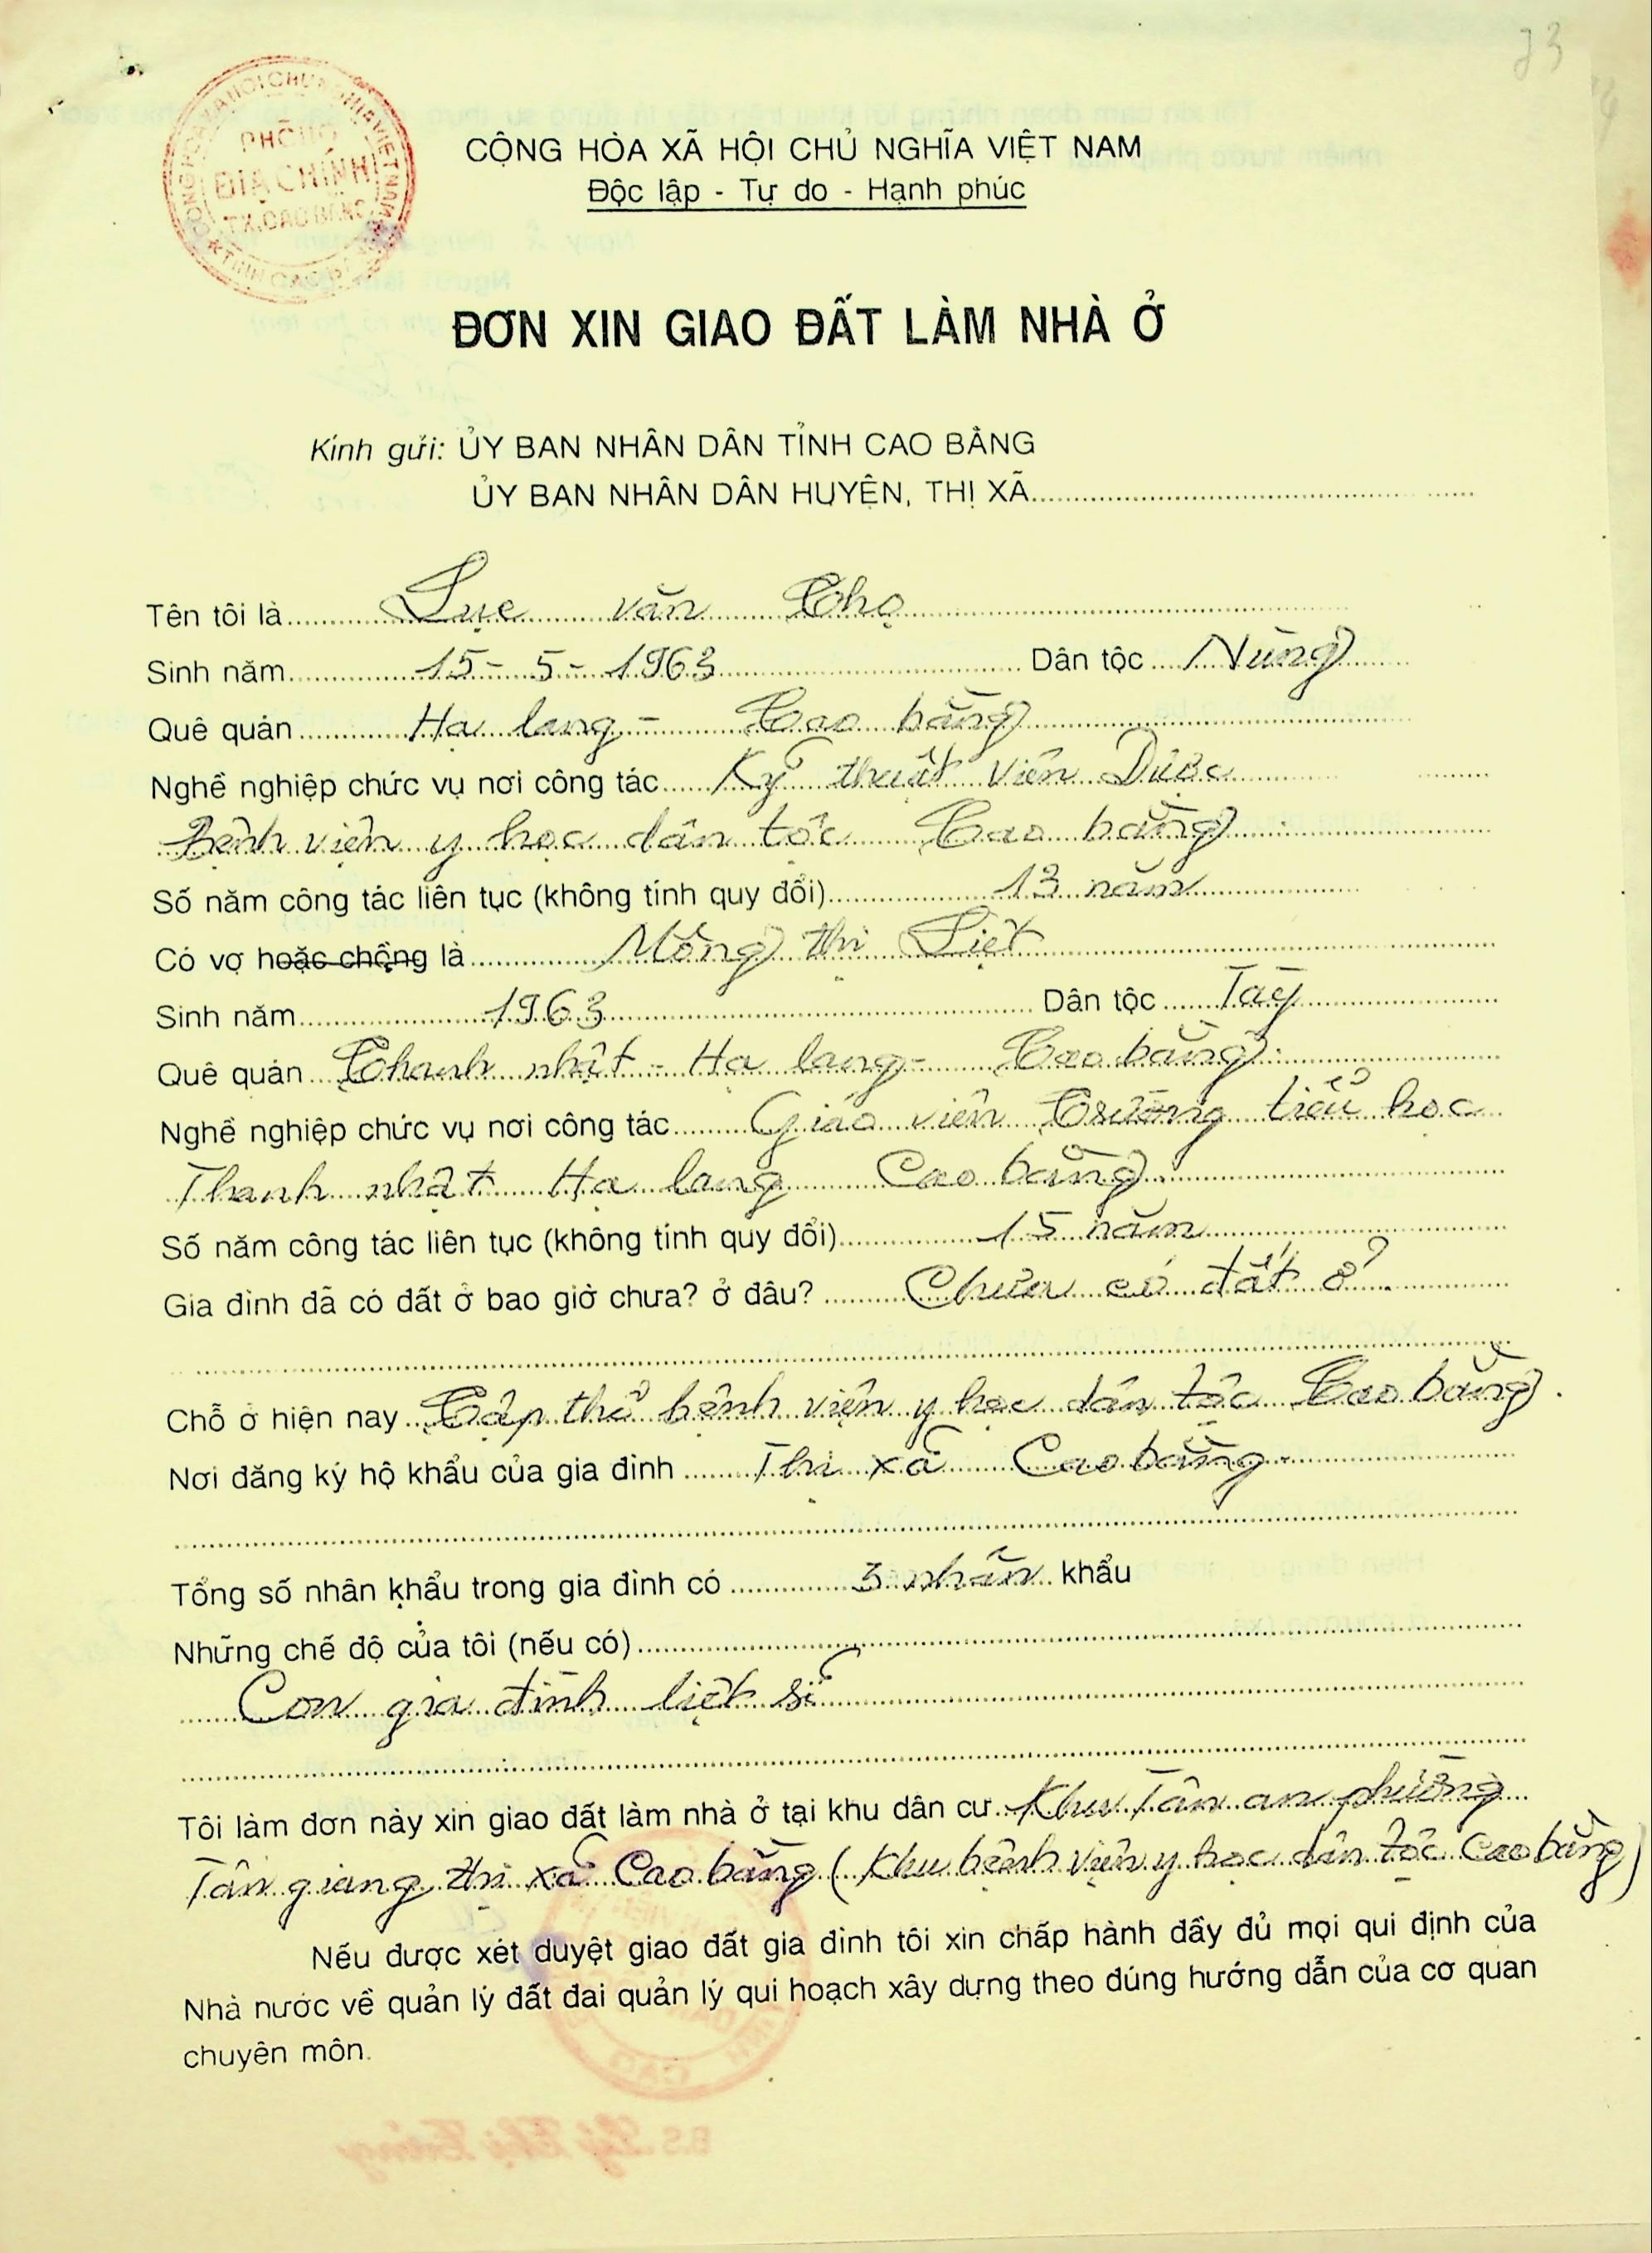 73
CỘNG HÒA XÃ HỘI CHỦ NGHĨA VIỆT NAM
PHÒNG
ĐỊA CHÍNH
TX. CAO BẰNG
CỘNG HÒA XÃ HỘI CHỦ NGHĨA VIỆT NAM
Độc lập - Tự do - Hạnh phúc
ĐƠN XIN GIAO ĐẤT LÀM NHÀ Ở
Kính gửi: ỦY BAN NHÂN DÂN TỈNH CAO BẰNG
ỦY BAN NHÂN DÂN HUYỆN, THỊ XÃ
Tên tôi là Lục văn Thọ
Sinh năm 15-5-1963 Dân tộc Nùng
Quê quán Hạ lang - Cao bằng
Nghề nghiệp chức vụ nơi công tác Kỹ thuật viên Dược
Bệnh viện y học dân tộc Cao bằng
Số năm công tác liên tục (không tính quy đổi) 13 năm
Có vợ hoặc chồng là Mông thị Liệt
Sinh năm 1963 Dân tộc Tày
Quê quán Thanh nhật - Hạ lang - Cao bằng
Nghề nghiệp chức vụ nơi công tác Giáo viên Trường tiểu học
Thanh nhật Hạ lang Cao bằng
Số năm công tác liên tục (không tính quy đổi) 15 năm
Gia đình đã có đất ở bao giờ chưa? ở đâu? Chưa có đất ở.
Chỗ ở hiện nay Tập thể bệnh viện y học dân tộc Cao bằng.
Nơi đăng ký hộ khẩu của gia đình Thị xã Cao bằng
Tổng số nhân khẩu trong gia đình có 3 nhân khẩu
Những chế độ của tôi (nếu có)
Con gia đình liệt sĩ
Tôi làm đơn này xin giao đất làm nhà ở tại khu dân cư Khu Tân an phường
Tân giang thị xã Cao bằng (Khu bệnh viện y học dân tộc Cao bằng)
Nếu được xét duyệt giao đất gia đình tôi xin chấp hành đầy đủ mọi qui định của
Nhà nước về quản lý đất đai quản lý qui hoạch xây dựng theo đúng hướng dẫn của cơ quan
chuyên môn.